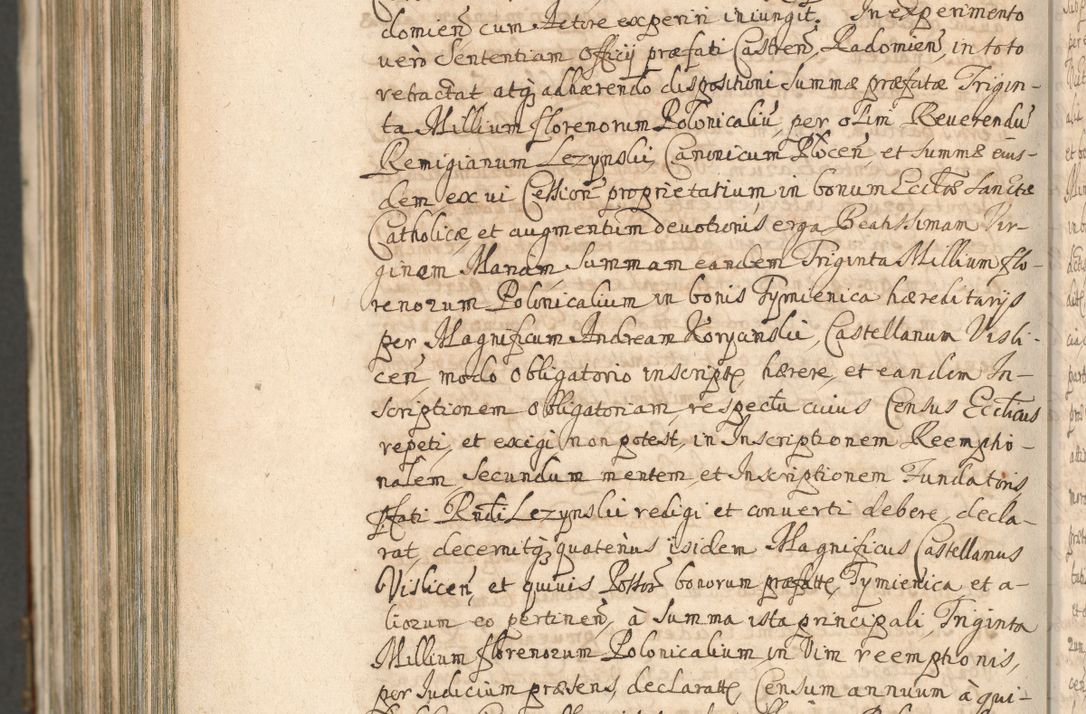 domień cum Actore experiri iniungit. In experimento
verò Sententiam Officij præfati Castreń, Radomień, in toto
retractat atq, adhærendo dispositioni Summæ præfatæ Trigin-
ta Millium florenorum Polonicaliū, per olim Reverendū
Remigianum Lezynskij, Canonicum Płoceń, et Summæ eius-
dem ex vi Cession proprietarium, in bonum Ecclæ Sanctæ
Catholicæ, et augmentum devotionis erga Beatissimam Vir-
ginem Mariam, Summam eandem Triginta Millium flo-
renorum Polonicalium in bonis Tymienica hæreditarijs
per Magnificum Andream Korycinskij, Castellanum Visli-
ceń, modo obligatorio inscriptę hærere, et eandem In-
scriptionem obligatoriam, respectu cuius Census Ecclicus
repeti, et exigi non potest, in Inscriptionem Reemptio-
nalem, secundum mentem, et Inscriptionem Fundatoris,
pfati Rndi Lezynskij redigi et converti debere, decla-
rat, decernitq, quatenus ijsidem Magnificus Castellanus
Vislicen, et quivis Possor bonorum præfattę, Tymienica, et a-
liorum eo pertineń, à Summa ista principali, Triginta
Millium florenorum Polonicalium, in Vim reemptionis,
per Iudicium præsens, declarattę, Censum annuum à qui-